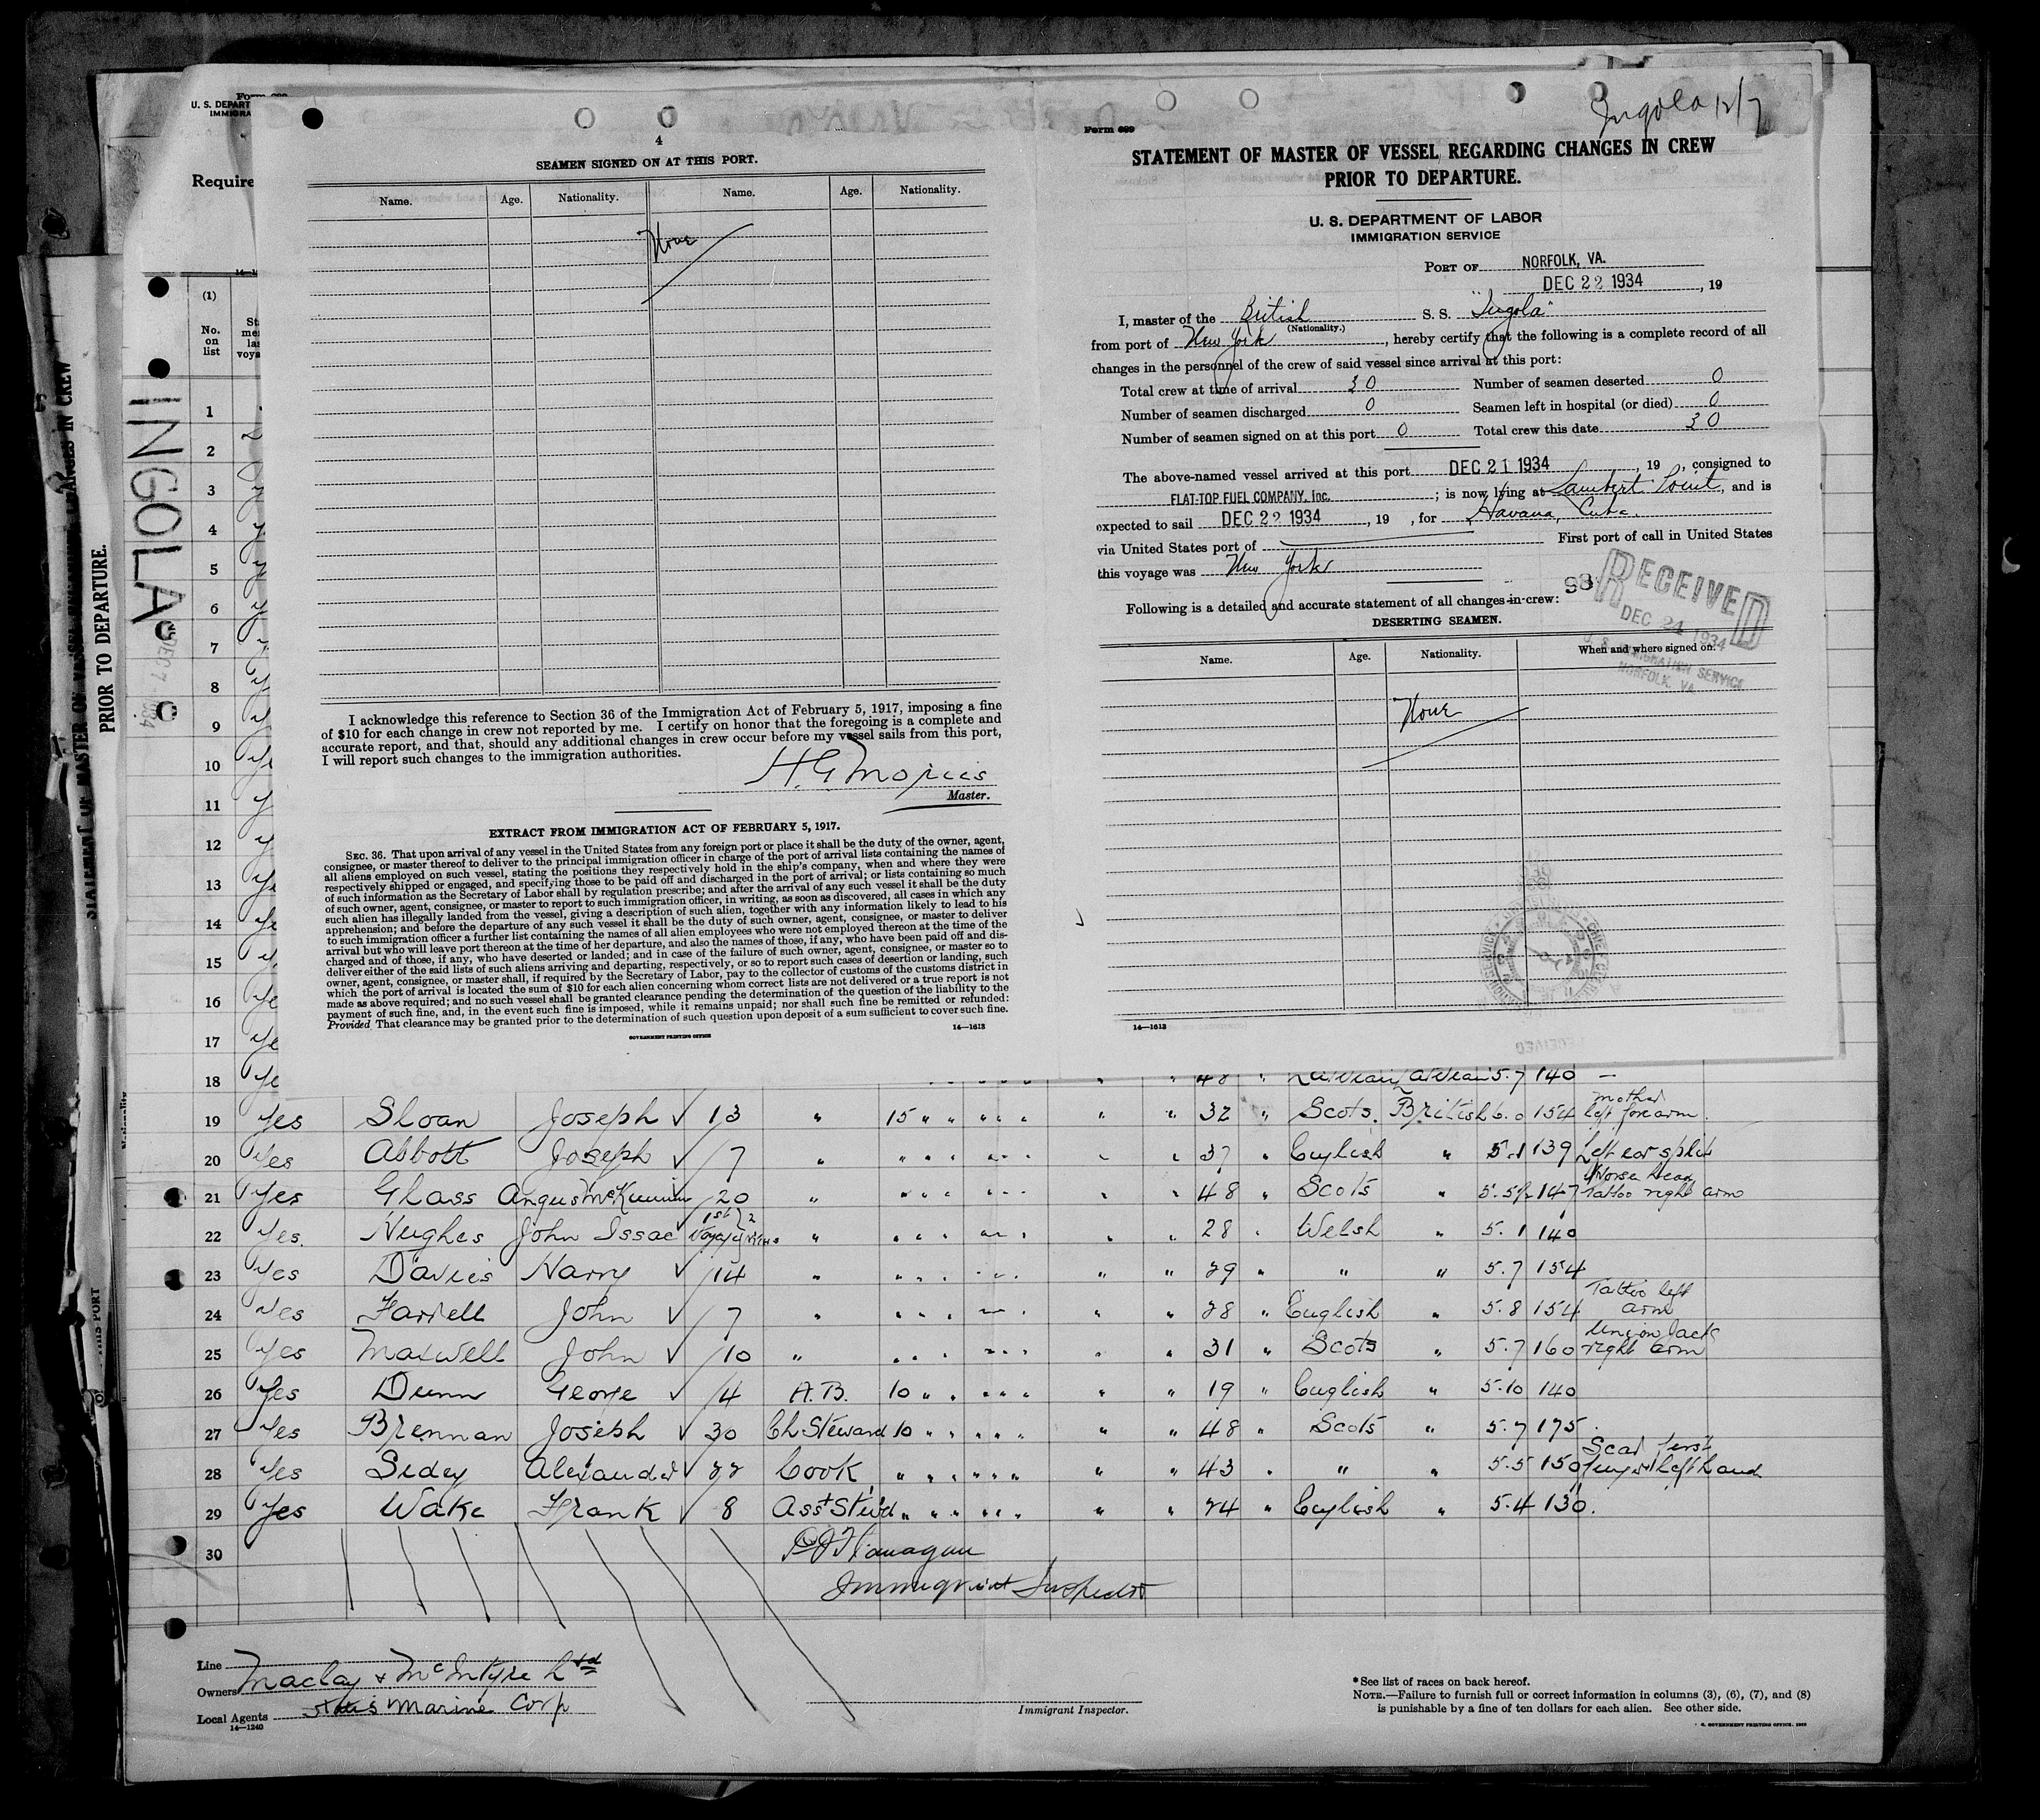 Form 699
U. S. DEPART
IMMIGRA
Require
INGOLA
DEC 7 1934
STATEMENT OF MASTER OF VESSEL REGARDING CHANGES IN CREW
PRIOR TO DEPARTURE.
4
SEAMEN SIGNED ON AT THIS PORT.
Name. Age. Nationality. Name. Age. Nationality.
None
I acknowledge this reference to Section 36 of the Immigration Act of February 5, 1917, imposing a fine
of $10 for each change in crew not reported by me. I certify on honor that the foregoing is a complete and
accurate report, and that, should any additional changes in crew occur before my vessel sails from this port,
I will report such changes to the immigration authorities.
H. G. Morris
Master.
EXTRACT FROM IMMIGRATION ACT OF FEBRUARY 5, 1917.
SEC. 36. That upon arrival of any vessel in the United States from any foreign port or place it shall be the duty of the owner, agent,
consignee, or master thereof to deliver to the principal immigration officer in charge of the port of arrival lists containing the names of
all aliens employed on such vessel, stating the positions they respectively hold in the ship's company, when and where they were
respectively shipped or engaged, and specifying those to be paid off and discharged in the port of arrival; or lists containing so much
of such information as the Secretary of Labor shall by regulation prescribe; and after the arrival of any such vessel it shall be the duty
of such owner, agent, consignee, or master to report to such immigration officer, in writing, as soon as discovered, all cases in which any
such alien has illegally landed from the vessel, giving a description of such alien, together with any information likely to lead to his
apprehension; and before the departure of any such vessel it shall be the duty of such owner, agent, consignee, or master to deliver
to such immigration officer a further list containing the names of all alien employees who were not employed thereon at the time of the
arrival but who will leave port thereon at the time of her departure, and also the names of those, if any, who have been paid off and dis-
charged and of those, if any, who have deserted or landed; and in case of the failure of such owner, agent, consignee, or master so to
deliver either of the said lists of such aliens arriving and departing, respectively, or so to report such cases of desertion or landing, such
owner, agent, consignee, or master shall, if required by the Secretary of Labor, pay to the collector of customs of the customs district in
which the port of arrival is located the sum of $10 for each alien concerning whom correct lists are not delivered or a true report is not
made as above required; and no such vessel shall be granted clearance pending the determination of the question of the liability to the
payment of such fine, and, in the event such fine is imposed, while it remains unpaid; nor shall such fine be remitted or refunded:
Provided That clearance may be granted prior to the determination of such question upon deposit of a sum sufficient to cover such fine.
GOVERNMENT PRINTING OFFICE 14—1613
Ingola 12/7
Form 699
STATEMENT OF MASTER OF VESSEL REGARDING CHANGES IN CREW
PRIOR TO DEPARTURE.
U. S. DEPARTMENT OF LABOR
IMMIGRATION SERVICE
PORT OF NORFOLK, VA.
DEC 22 1934, 19
I, master of the British S. S. "Ingola"
(Nationality.)
from port of New York, hereby certify that the following is a complete record of all
changes in the personnel of the crew of said vessel since arrival at this port:
Total crew at time of arrival 30 Number of seamen deserted 0
Number of seamen discharged 0 Seamen left in hospital (or died) 0
Number of seamen signed on at this port 0 Total crew this date 30
The above-named vessel arrived at this port DEC 21 1934, 19 , consigned to
FLAT-TOP FUEL COMPANY, Inc. ; is now lying at Lambert Point, and is
expected to sail DEC 22 1934, 19 , for Havana, Cuba.
via United States port of First port of call in United States
this voyage was New York
98
RECEIVED
DEC 24 1934
U. S. IMMIGRATION SERVICE
NORFOLK, VA.
Following is a detailed and accurate statement of all changes in crew:
DESERTING SEAMEN.
Name. Age. Nationality. When and where signed on.
None
14—1613
(1)
No. on list
1
2
3
4
5
6
7
8
9
10
11
12
13
14
15
16
17
18 Ye 48 " Latvian Latvian 5.7 140 —
19 Yes Sloan Joseph ✓ 13 " 15 " " " " " " " 32 " Scots. British 6.0 154 mother left forearm.
20 Yes Abbott Joseph ✓ 7 " " " " " " " " " 37 " English " 5.1 139 Left ear split
21 Yes Glass Angus ✓ 20 " " " " " " " " " 48 " Scots " 5.5½ 147 Horse Head Tattoo right arm
22 Yes. Hughes John Issac 1st Voyage " " " " " " " " " 28 " Welsh " 5.1 140
23 Yes Davies Harry ✓ 14 " " " " " " " " " 29 " " " 5.7 154
24 Yes Farrell John ✓ 7 " " " " " " " " " 28 " English " 5.8 154 Tattoo left arm
25 Yes Maxwell John ✓ 10 " " " " " " " " " 31 " Scots " 5.7 160 Union Jack right arm
26 Yes Dunn George ✓ 4 A.B. 10 " " " " " " " 19 " English " 5.10 140
27 Yes Brennan Joseph ✓ 30 Ch Steward 10 " " " " " " " 48 " Scots " 5.7 175.
28 Yes Sidey Alexander ✓ 22 Cook " " " " " " " " 43 " " " 5.5 150 Scar first finger left hand
29 Yes Wake Frank ✓ 8 Asst Stew'd " " " " " " " " 24 " English " 5.4 130.
30 Flanagan
Immigrant Inspector
Line
Owners Maclay & McIntyre Ltd
Local Agents Marine Corp
14—1240
Immigrant Inspector.
*See list of races on back hereof.
NOTE.—Failure to furnish full or correct information in columns (3), (6), (7), and (8)
is punishable by a fine of ten dollars for each alien. See other side.